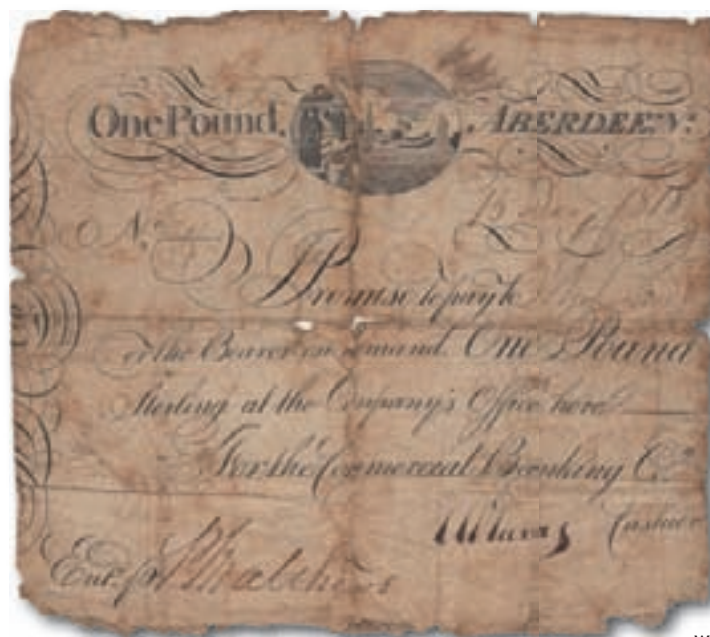 One Pound. ABERDEEN:
No.
I Promise to pay to
or the Bearer on demand One Pound
Sterling at the Company's Office here
For the Commercial Banking Co.
Cashier
Ent.